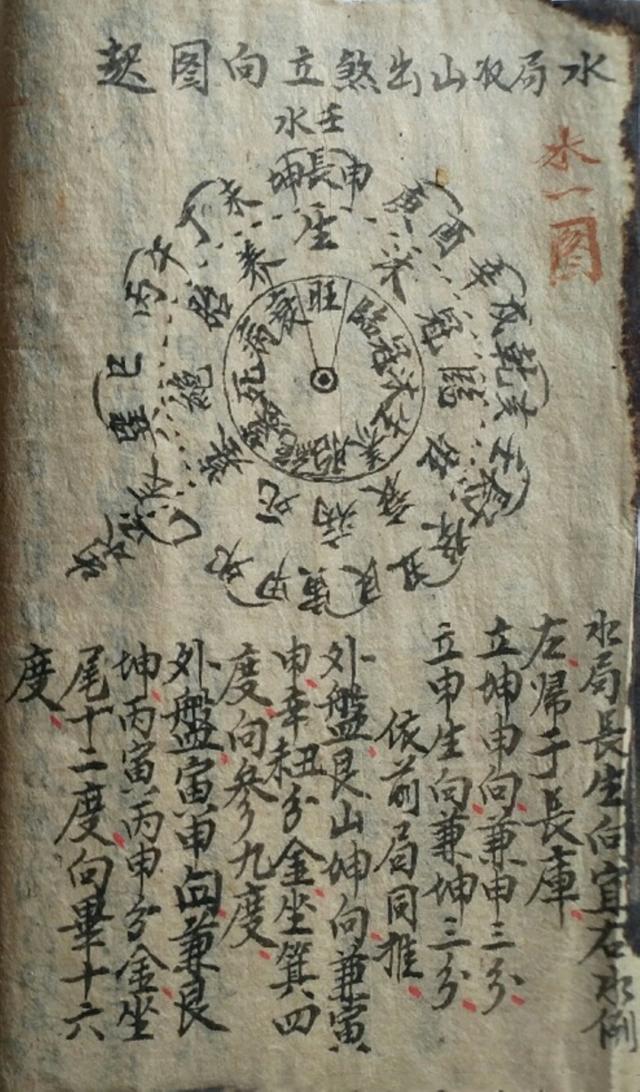 水局收山出煞立向图起
水一图
壬水
坤長申
庚酉
辛戌
乾亥
壬子
癸丑
艮寅
甲卯
巽巳
丙午
丁未
生
沐
冠
臨
旺
衰
病
死
墓
絶
胎
养
旺
臨
冠
沐
生
养
胎
絶
墓
死
病
衰
水局長生向宜右水倒
左歸于長庫
立坤申向兼申三分
立申生向兼坤三分
依前局同推
外盤艮山坤向兼寅
申辛丑分金坐箕四
度向参九度
外盤寅申向兼艮
坤丙寅丙申分金坐
尾十二度向畢十六
度